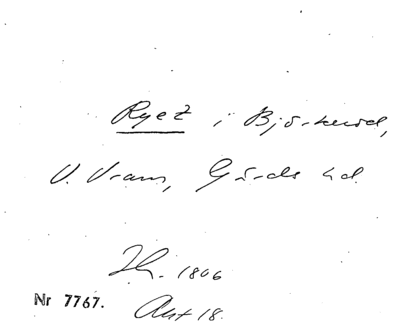 Ryet i Björkerød,
V. Vram, Gärds hd.
Jh. 1806
Nr 7767. Akt 18.